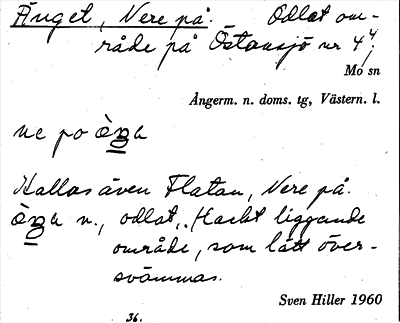 Änget, Nere på. Odlat om-
råde på Östansjö nr 4⁴,
Mo sn
Ångerm. n. doms. tg, Västern. l.
ne po
Kallas även Flatan, Nere på.
n., odlat, . Flackt liggande
område, som lätt över-
svämmas.
Sven Hiller 1960
36.